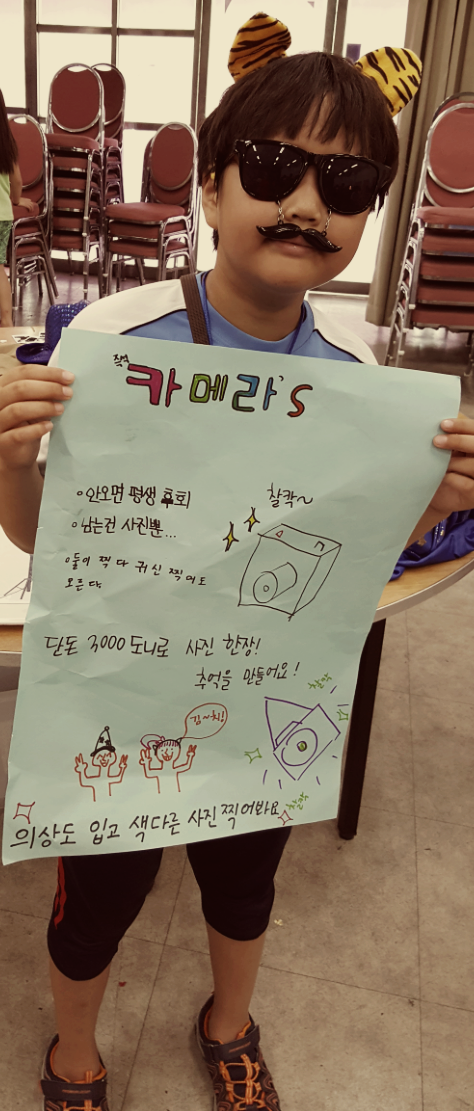 찍셔
카메라's
◦안오면 평생 후회
◦남는건 사진뿐...
◦둘이 찍다 귀신 찍어도
모른다.
찰칵~
단돈 3000도니로 사진 한장!
추억을 만들어요!
찰칵
김~치!
찰칵
의상도 입고 색다른 사진찍어봐요